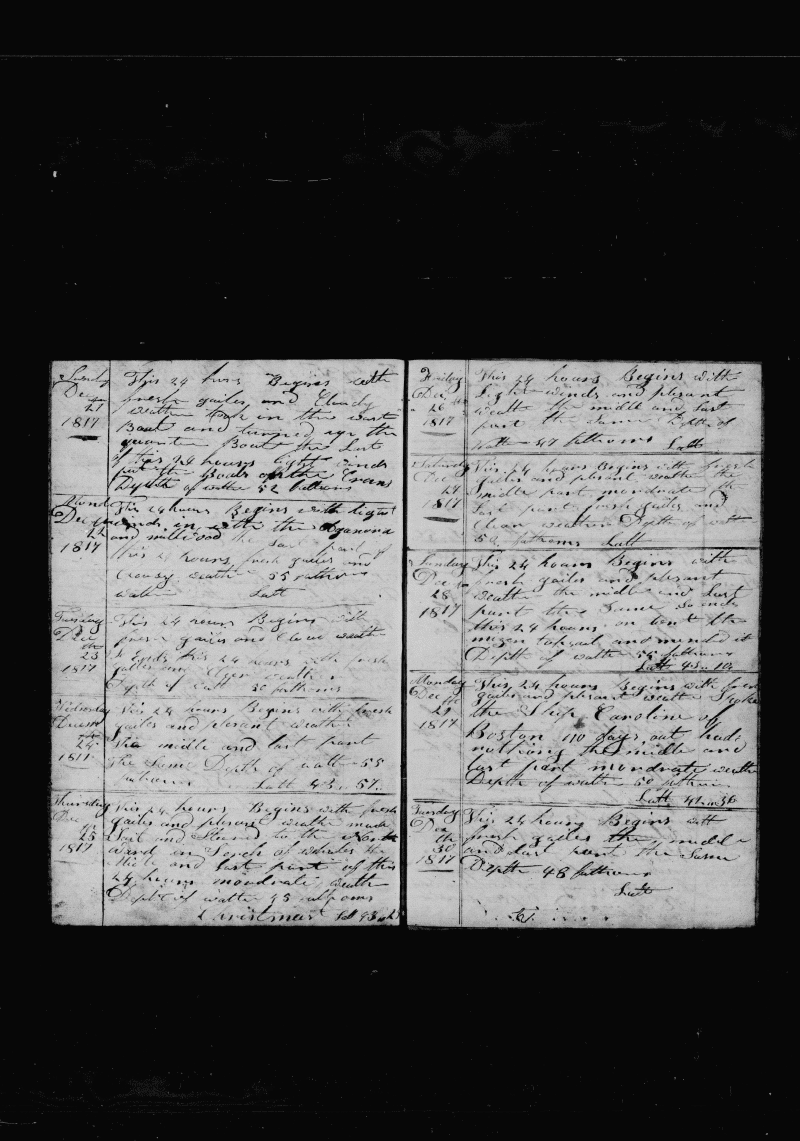 Sunday This 24 hours Begins with
Dec fresh gailes and Cloudy
21 weather took in the waist
1817 Boat and turned up the
quarter Boat the Last
of this 24 hours light winds
Depth of watter 52 fathoms
Monday This 24 hours Begins with light
Dec winds in with the
22 and the last part of
1817 this 24 hours fresh gailes and
weath 55 fathoms
Latt
Tuesday This 24 hours Begins with
Dec fresh gailes and Clear weath
23 So Ends this 24 hours with fresh
1817 gailes and Clear weath
Depth of watt 50 fathoms
This 24 hours Begins with fresh
gailes and plesant weath
24 the middle and last part
the Same Depth of watt 55
fathoms Latt 43: 57
Thursday This 24 hours Begins with fresh
Dec gailes and plesant weath made
25 Sail and Stered to the North
1817 ward in Serch of whales the
Midle and last part of this
24 hours mondrate weath
Depth of watte 45
Christmas
Friday This 24 hours Begins with
Dec Light winds and plesant
26 weath the middle and Last
1817 part the Same Depth of
watte 47 fathoms Latt
Saturday This 24 hours Begins with fresh
Dec gailes and plesant weath the
27 middle part mondrate the
1817 Last part fresh gailes and
Clear weath Depth of watt
50 fathoms Latt
Sunday This 24 hours Begins with
Dec fresh gailes and plesant
28 weath the middle and Last
1817 part the Same So ends
this 24 hours on bent the
mizen topsail and mended it
Depth of watte 55 fathoms
Latt 43:10
Monday This 24 hours Begins with fresh
Dec gailes and plesant weath Spoke
29 the Ship Caroline of
1817 Boston 110 days out had
nothing the middle and
last part mondrate weath
Depth of watte 50 fathoms
Latt
This 24 hours Begins with
Dec fresh gailes the middle
30 and last part the Same
1817 Depth 48 fathoms
Latt